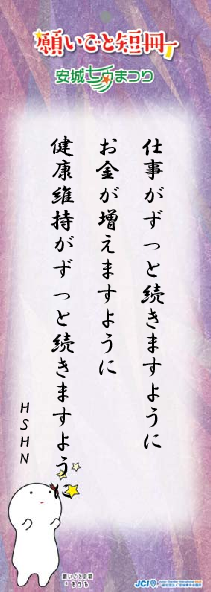 願いごと短冊
安城七夕まつり
仕事がずっと続きますように
お金が増えますように
健康維持がずっと続きますように
HSHN
JCI